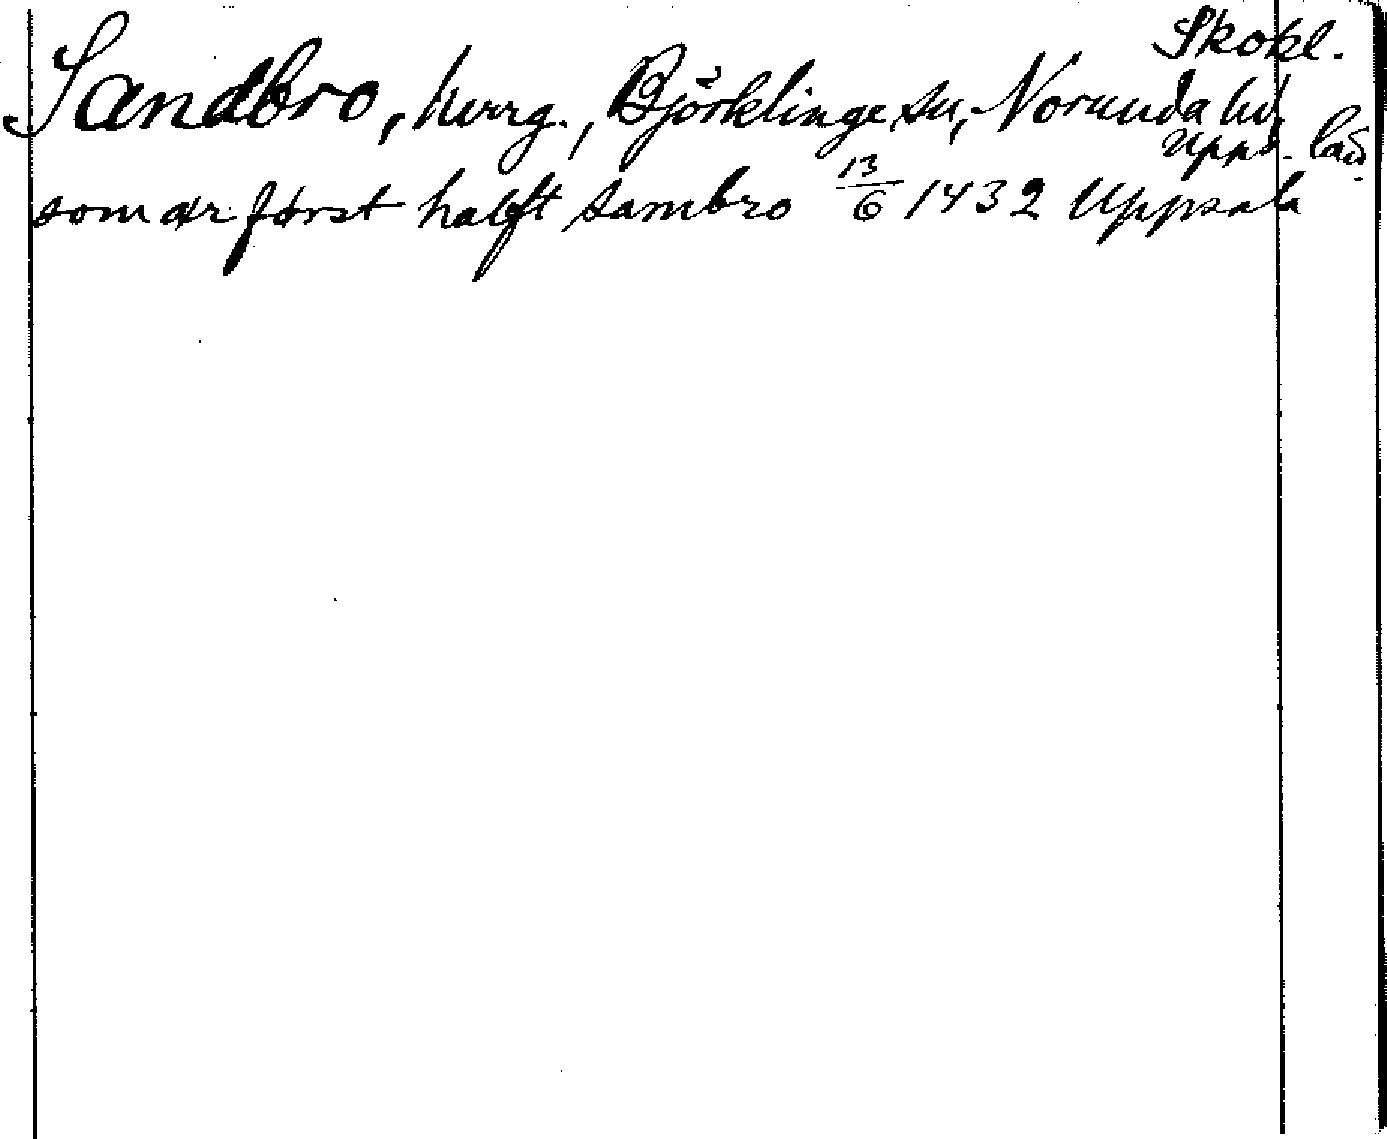 Skokl.
Sandbro, herrg., Björklinge sn, Norunda hd,
Upps. län.
som ær først halfft sambro 13/6 1432 Uppsala